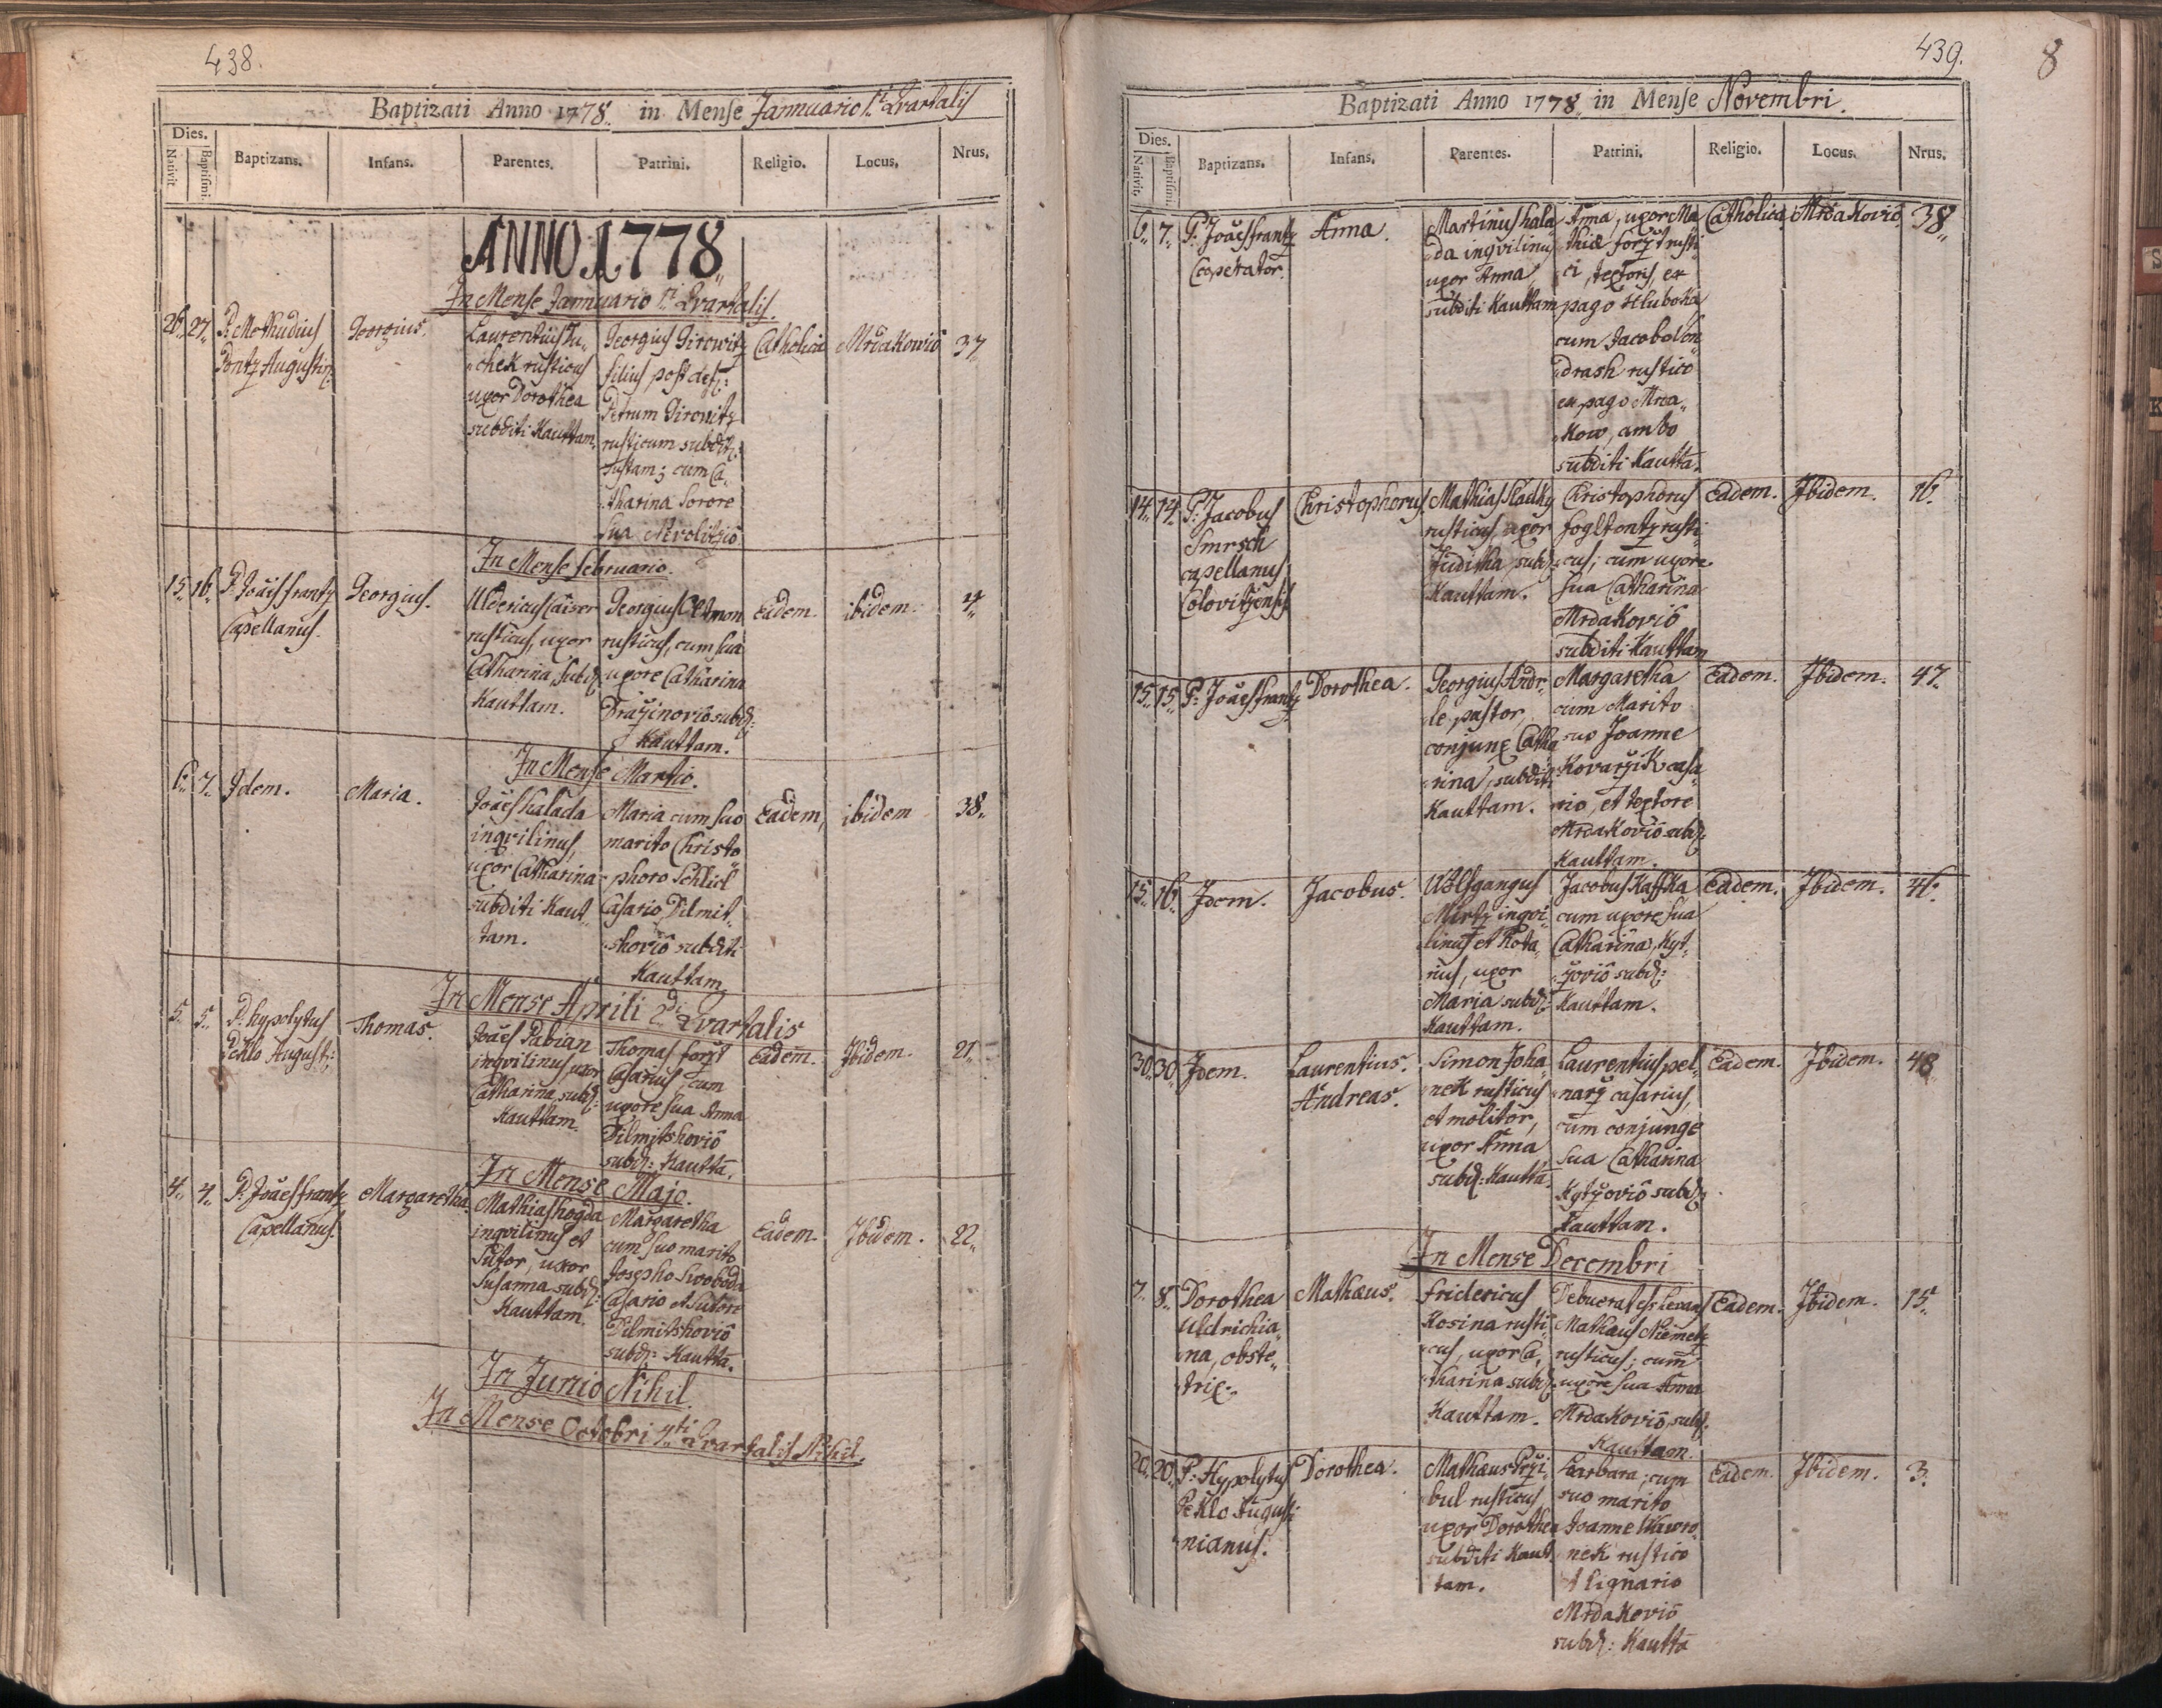 438.
Baptizati Anno 1778. in Mense Jannuario 1i Qvartalis
Dies.
Nativit.
Baptismi
Baptizans.
Infans.
Parentes.
Patrini.
Religio.
Locus.
Nrus.
ANNO 1778
In Mense Jannuario 1i Qvartalis.
26. 27. P. Methudius
Augustin:
Georgius.
Laurentius Tu,,
,,chek rusticus
uxor Dorothea
subditi Kauttam.
Georgius Girowitz
filius post def:
Petrum Girowitz
rusticum subdit:
cum Ca,,
,,tharina Sorore
sua
Catholica
Mrdakowiô
37
In Mense Februario.
15. 16. P. Joaes Frantz
Capellanus.
Georgius.
Uldericus Caiser
rusticus, uxor
Catharina, Subd:
Kauttam.
Georgius
rusticus, cum sua
uxore Catharina
subd:
Kauttam.
Eadem.
ibidem.
4
In Mense Martio.
6. 7. Idem.
Maria.
Joaes Halada
inqvilinus,
uxor Catharina
subditi Kaut,,
tam.
Maria cum suo
marito Christo,,
,,phoro
Casario Dilmit,,
,,shoviô subditi
Kauttam.
Eadem,
ibidem
38.
In Mense Aprili 2di Qvartalis
5. 5. P. Hypolytus
Peklo August:
Thomas.
Joaes Pabian
inqvilinus, uxor
Catharina, subd:
Kauttam.
Thomas Forst
Casarius, cum
uxore sua Anna
Dilmitshoviô
subd: Kautta.
Eadem.
Ibidem.
21.
In Mense Majo.
4. 4. P. Joaes Frantz
Capellanus.
Margaretha
Mathias Hogda
inqvilinus et
Sutor, uxor
Susanna subd:
Kauttam.
Margaretha
cum suo marito
Josepho Swoboda
Casario et Sutore
Dilmitshoviô
subd: Kautta.
Eadem.
Ibidem.
22.
In Junio Nihil.
In Mense Octobri 4ti Qvartalis Nihil.
439.
8
Baptizati Anno 1778. in Mense Novembri.
Dies.
Nativit.
Baptismi
Baptizans.
Infans.
Parentes.
Patrini.
Religio.
Locus.
Nrus.
6. 7. P. Joaes Frantz
Coperator.
Anna.
Martinus Hala,,
,,da inqvilinus
uxor Anna
subditi Kauttam
Anna, uxor Ma,,
thiae Forst rusti,,
ci, textoris, ex
pago Hluboka
cum Jacobo Con,,
,,drash rustico
ex pago Mrda,,
,,kow, ambo
subditi Kautta.
Catholica
Mrdakoviô
38.
14. 14. P. Jacobus
Smrsch
capellanus
Colovitzensis
Christophorus.
Mathias Sladky
rusticus, uxor
Juditha, subd:
Kauttam.
Christophorus
Fogltontz rusti,,
,,cus; cum uxore
sua Catharina
Mrdakoviô
subditi Kauttam
Eadem.
Ibidem.
16.
15. 15. P. Joaes Frantz
Dorothea.
Georgius Andr,,
,,le pastor,
conjunx Catha,,
,,rina, subditi
Kauttam.
Margaretha
cum Marito
suo Joanne
Kovarzik casa,,
,,rio, et textore
Mrdakoviô subd:
Kauttam.
Eadem.
Ibidem.
47.
15. 16. Idem.
Jacobus.
Wolfgangus
Mirtz inqvi,,
linus et Rota,,
,,rius, uxor
Maria subd:
Kauttam.
Jacobus Kaffka
cum uxore sua
Catharina, Kyt,,
,,zoviô subd:
Kauttam.
Eadem.
Ibidem.
46.
30. 30. Idem.
Laurentius.
Andreas.
Simon Joha,,
,,nek rusticus
et molitor,
uxor Anna
subd: Kautta.
Laurentius Pel,,
,,narz casarius,
cum conjunge
sua Catharina
Kytzoviô subd:
Kauttam.
Eadem.
Ibidem.
48
In Mense Decembri
7. 8. Dorothea
Uldrichia,,
,,na, obste,,
,,trix.
Mathaeus.
Fridericus
Kosina rusti,,
,,cus, uxor Ca,,
,,tharina subd:
Kauttam.
Debuerat esse levans
Mathaeus Niemetz
rusticus; cum
uxore sua Anna
Mrdakoviô, subd:
Kauttam.
Eadem.
Ibidem.
15.
20. 20. P. Hypolytus
Peklo Augusti,,
nianus.
Dorothea.
Mathaeus Przi,,
bul rusticus
uxor Dorothea
subditi Kaut,,
tam.
Barbara, cum
suo marito
Joanne Wawro,,
nek rustico
et lignario
Mrdakoviô
subd: Kautta
Eadem.
Ibidem.
3.